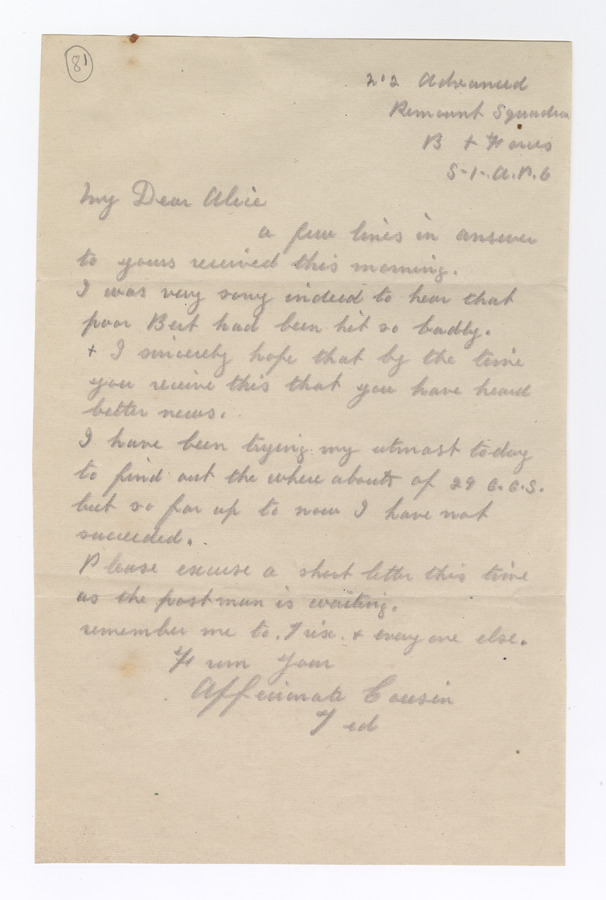 81
2nd Advanced
Remount Squadron
B + Forces
S-1-A.P.O
My Dear Alice
a few lines in answer
to yours received this morning.
I was very sorry indeed to hear that
poor Bert had been hit so badly.
+ I sincerely hope that by the time
you receive this that you have heard
better news.
I have been trying my utmost today
to find out the where abouts of 29 C.C.S.
but so far up to now I have not
succeeded.
Please excuse a short letter this time
as the postman is waiting.
remember me to. Trix. + every one else.
From Your
Affecionate Cousin
Ted